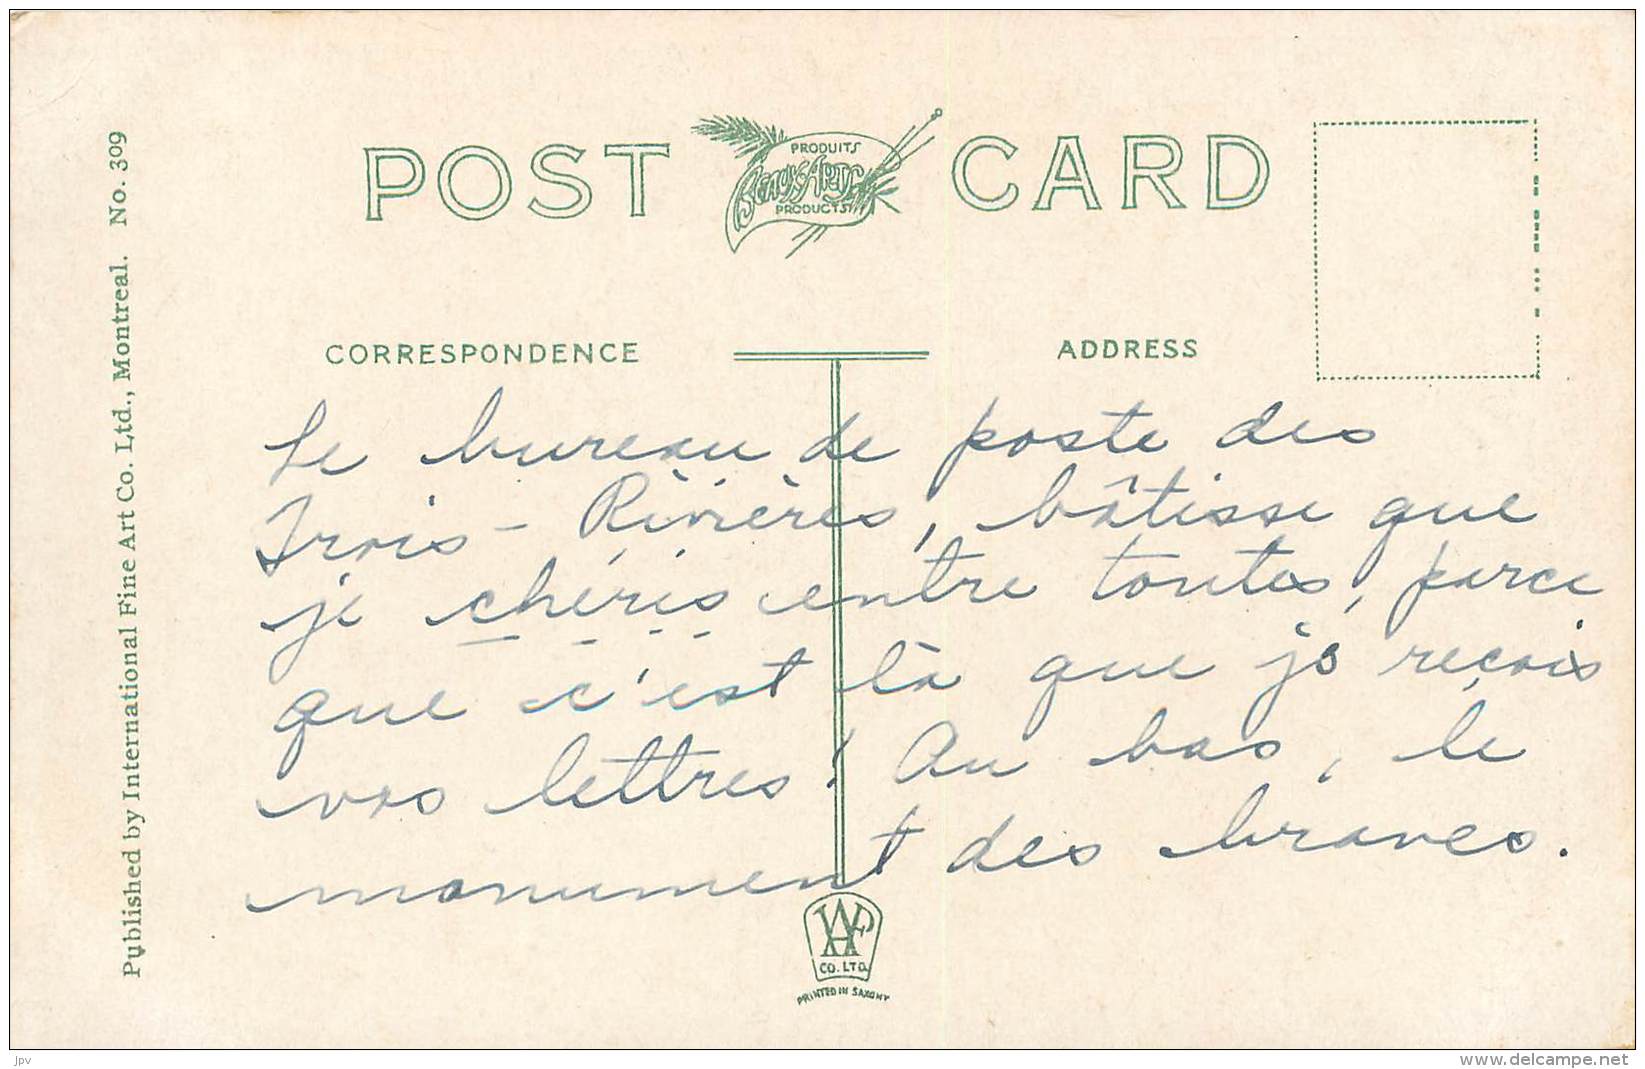 POST CARD
PRODUITS
BEAUX-ARTS
PRODUCTS
CORRESPONDENCE
ADDRESS
Le bureau de poste des
Trois-Rivières, bâtisse que
je chéris entre toutes, parce
que c'est là que je reçois
vos lettres! Au bas, le
monument des braves.
Published by International Fine Art Co. Ltd., Montreal. No. 309
CO. LTD.
PRINTED IN SAXONY
jpv
www.delcampe.net